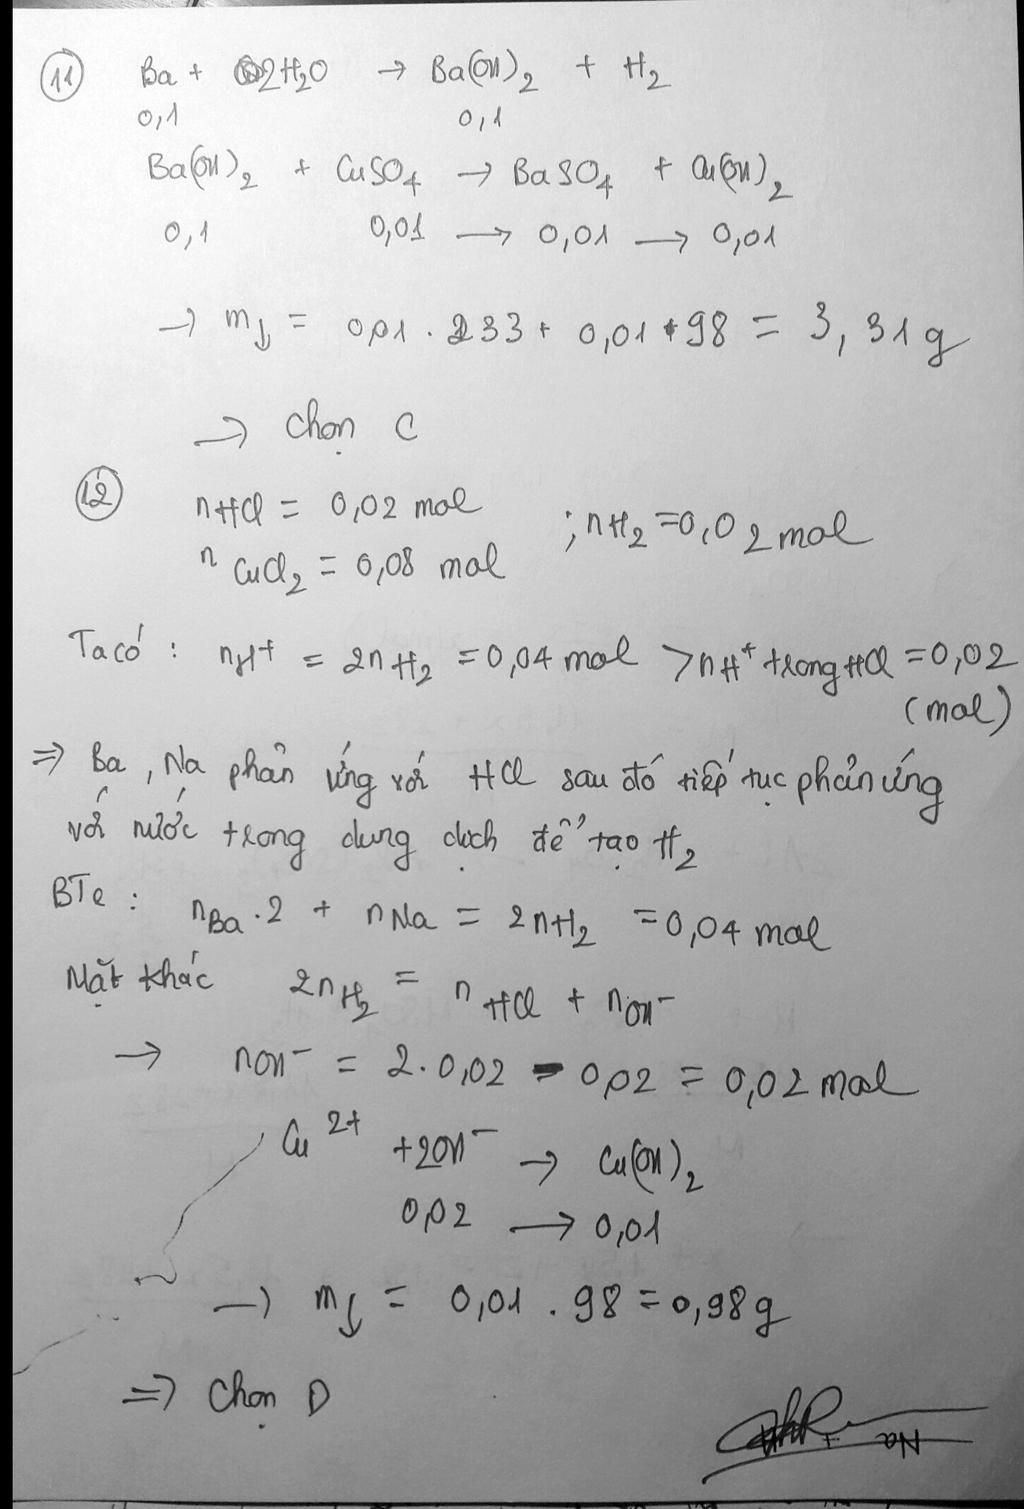 11 Ba + 2H2O → Ba(OH)2 + H2
0,1 0,1
Ba(OH)2 + CuSO4 → BaSO4 + Cu(OH)2
0,1 0,01 → 0,01 → 0,01
→ m↓ = 0,01 . 233 + 0,01 * 98 = 3,31g
→ Chọn C
12 nHCl = 0,02 mol ; nH2 = 0,02 mol
nCuCl2 = 0,08 mol
Ta có : nH+ = 2nH2 = 0,04 mol > nH+ trong HCl = 0,02
(mol)
⇒ Ba, Na phản ứng với HCl sau đó tiếp tục phản ứng
với nước trong dung dịch để tạo H2
BTe : nBa . 2 + nNa = 2nH2 = 0,04 mol
Mặt khác 2nH2 = nHCl + nOH-
→ nOH- = 2. 0,02 - 0,02 = 0,02 mol
Cu2+ + 2OH- → Cu(OH)2
0,02 → 0,01
→ m↓ = 0,01 . 98 = 0,98g
⇒ Chọn D